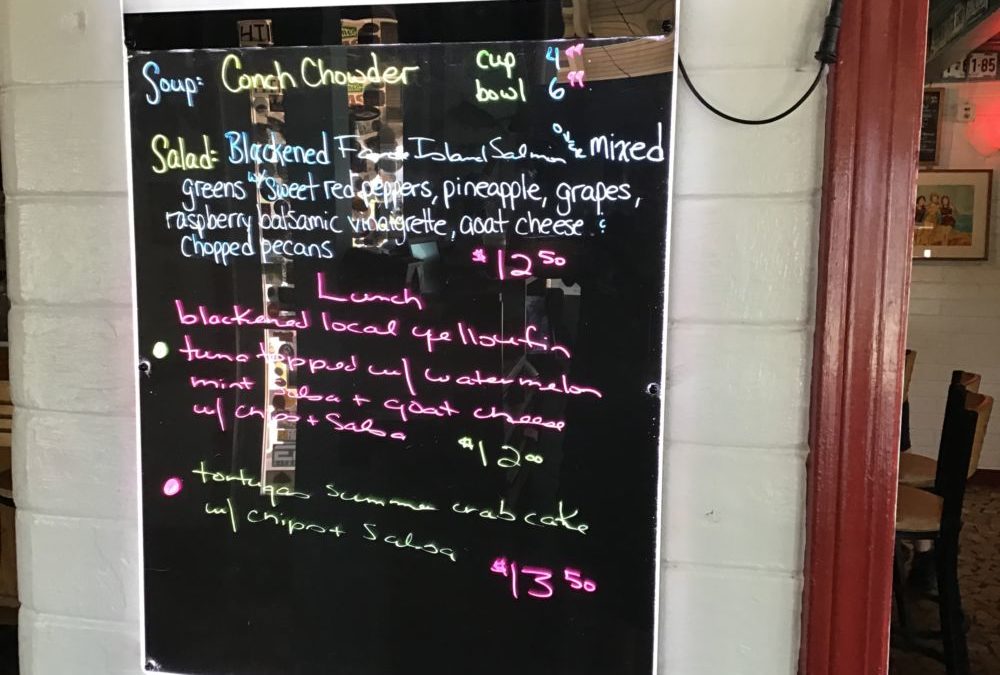 Soup: Conch Chowder cup 4 99
bowl 6 99
Salad: Blackened Faroe Island Salmon over mixed
greens w/ sweet red peppers, pineapple, grapes,
raspberry balsamic vinaigrette, goat cheese &
Chopped pecans
$12 50
Lunch
blackened local yellowfin
tuna topped w/ watermelon
mint salsa + goat cheese
w/ chips + Salsa
$12 00
tortugas summer crab cake
w/ chips + Salsa
$13 50
1-85